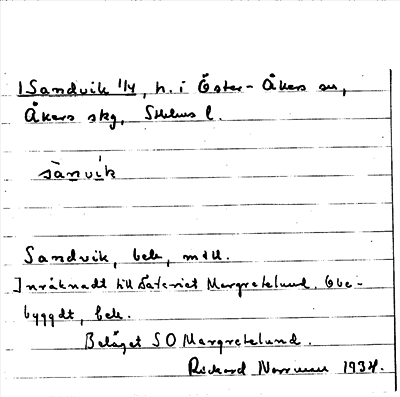 Sandvik 1/4, h. i Öster-Åkers sn,
Åkers skg, Sthlms l.
sànvík
Sandvik, bek., mtl.
Inräknadt till Säteriet Margretelund. Obe-
byggdt, bek.
Beläget SO Margretelund.
Rickard Norrman 1934.